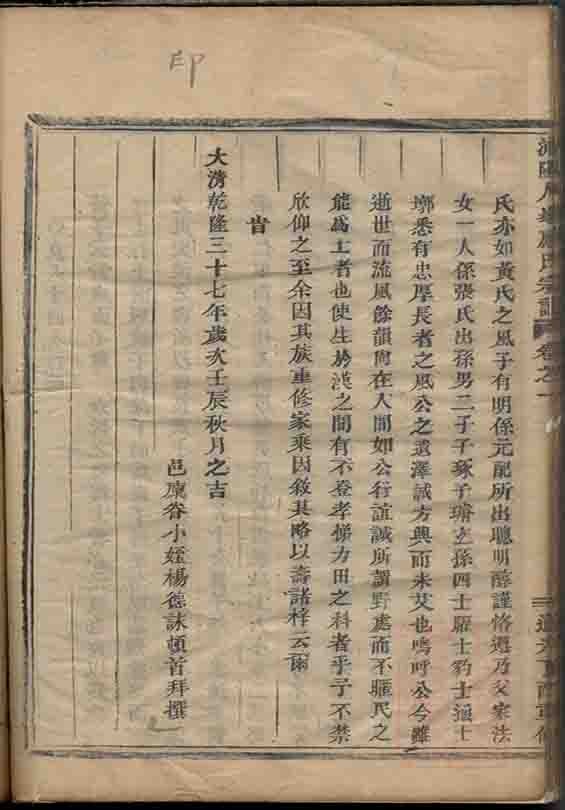 氏宗譜
卷之一
氏亦如黃氏之風子有明係元配所出聰明醇謹恪遵乃父家法
女一人係張氏出孫男二子子琢子璿玄孫四士驪士豹士 士
墎悉有忠厚長者之風公之遺澤誠方興而未艾也嗚呼公今雖
逝世而流風餘韻尚在人間如公行誼誠所謂野處而不匿民之
能為士者也使生於漢之間有不登孝悌力田之科者乎予不禁
欣仰之至余因其族重修家乘因敘其略以壽諸梓云爾
旹
大清乾隆三十七年歲次壬辰秋月之吉
邑廩眷小姪楊德 頓首拜撰
印